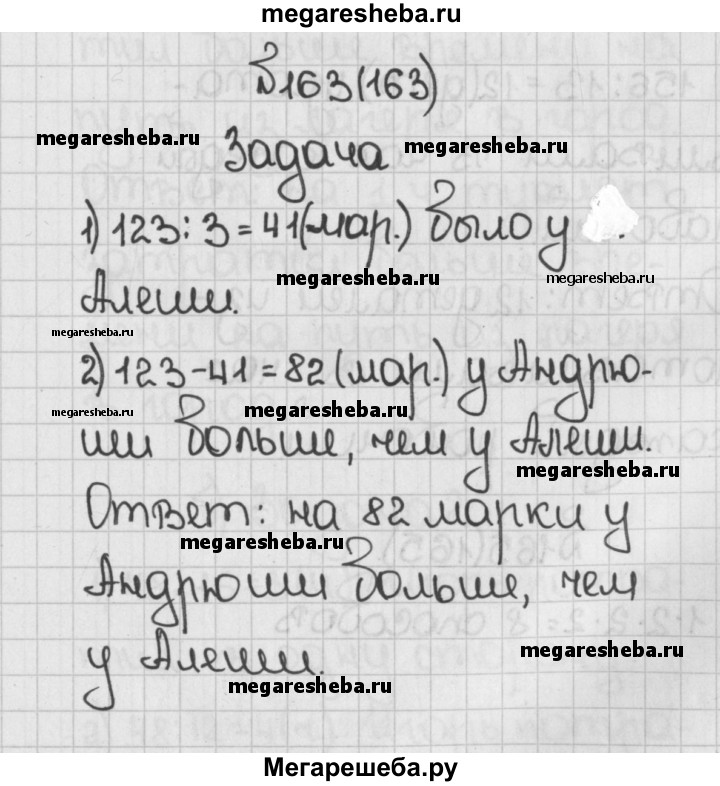 megaresheba.ru
№163(163)
megaresheba.ru
Задача
megaresheba.ru
1) 123:3=41(мар.) было у
megaresheba.ru
megaresheba.ru
Алеши.
megaresheba.ru
2) 123-41=82(мар.) у Андрю-
megaresheba.ru
megaresheba.ru
ши больше, чем у Алеши.
megaresheba.ru
Ответ: на 82 марки у
megaresheba.ru
Андрюши больше, чем
megaresheba.ru
у Алеши.
megaresheba.ru
Мегарешеба.ру